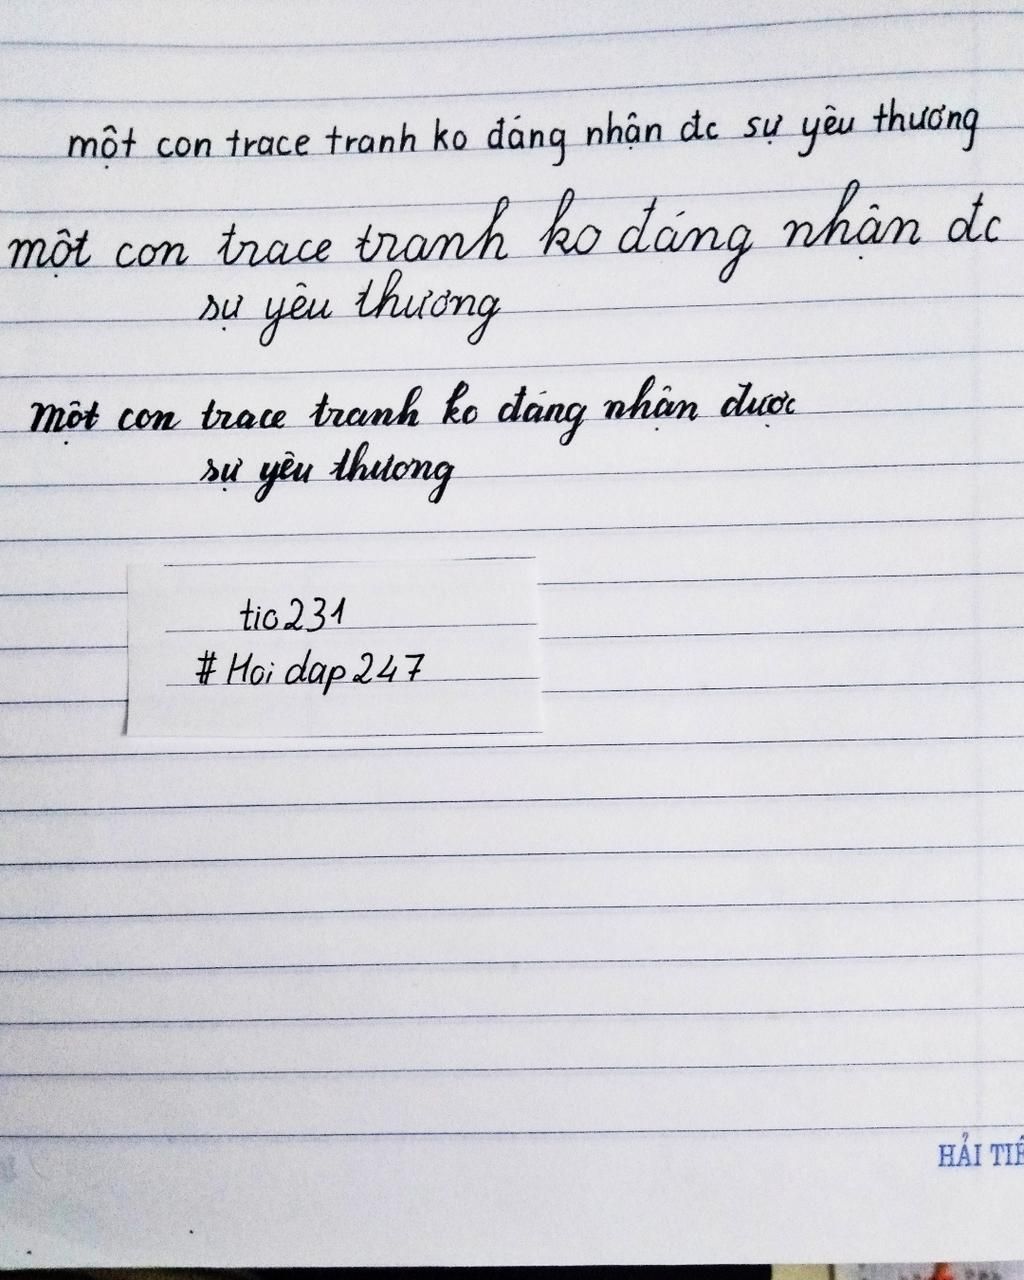 một con trace tranh ko đáng nhận đc sự yêu thương
một con trace tranh ko đáng nhận đc
sự yêu thương
Một con trace tranh ko đáng nhận được
sự yêu thương
tic231
# Hoi dap247
HẢI TIẾ